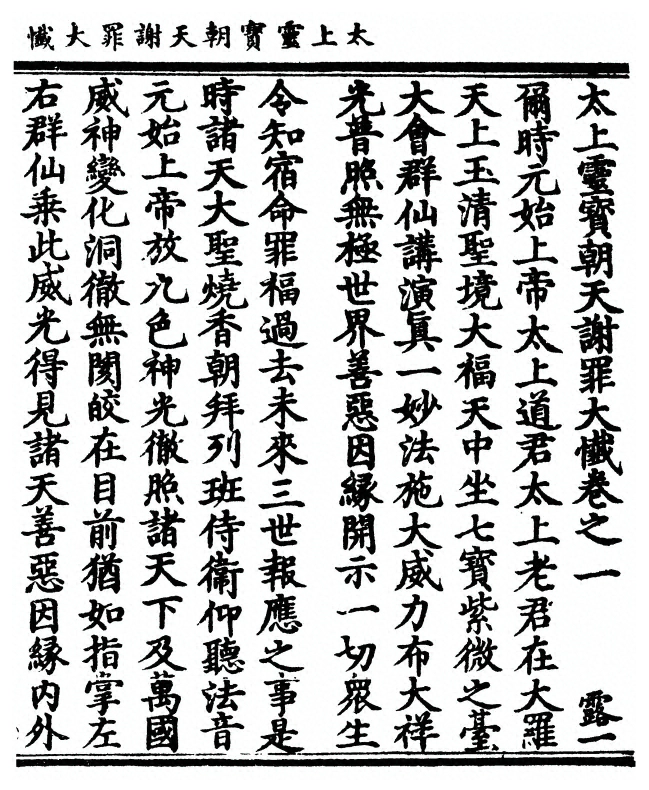 太上靈寶朝天謝罪大懺
太上靈寶朝天謝罪大懺卷之一　露一
爾時元始上帝太上道君太上老君在大羅
天上玉清聖境大福天中坐七寶紫微之臺
大會群仙講演眞一妙法施大威力布大祥
光普照無極世界善惡因緣開示一切衆生
令知宿命罪福過去未來三世報應之事是
時諸天大聖燒香朝拜列班侍衞仰聽法音
元始上帝放九色神光徹照諸天下及萬國
威神變化洞徹無閡皎在目前猶如指掌左
右群仙乘此威光得見諸天善惡因緣內外